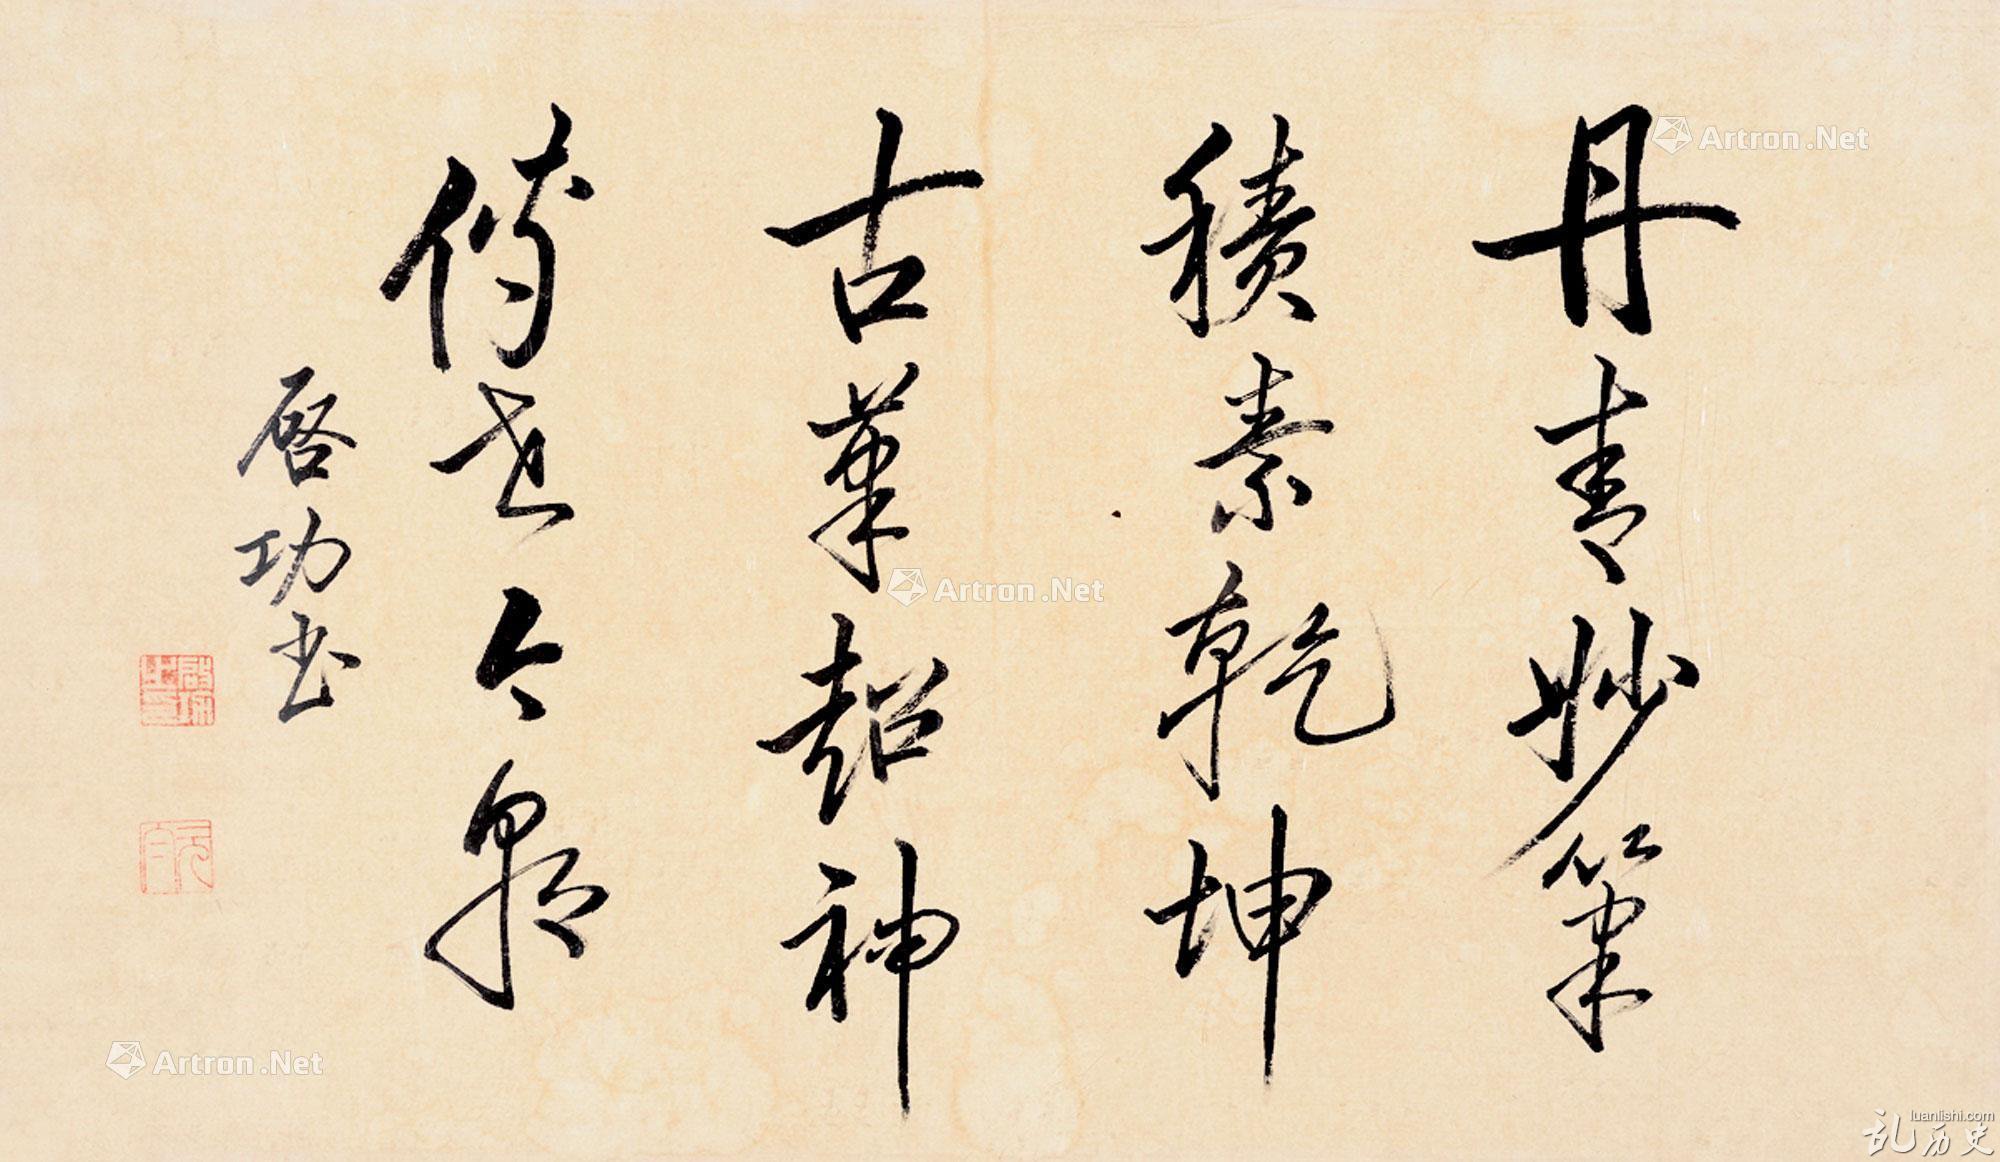 丹青妙筆
積素乾坤
古超神
今
啓功書
啟功之印
元白
Artron.Net
Artron.Net
Artron.Net
luanlishi.com
乱历史